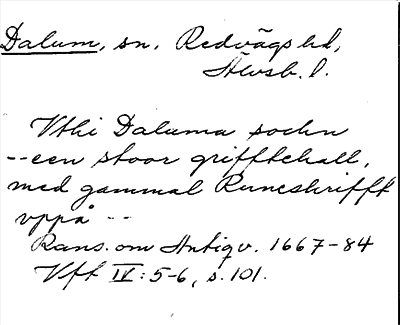 Dalum, sn, Redvägs hd,
Älvsb. l.
Vthi Daluma sochn
-- een stoor grifftehall,
med gammal Runeskrifft
vppå --
Rans. om Antiqv. 1667-84
Vft IV: 5-6, s. 101.